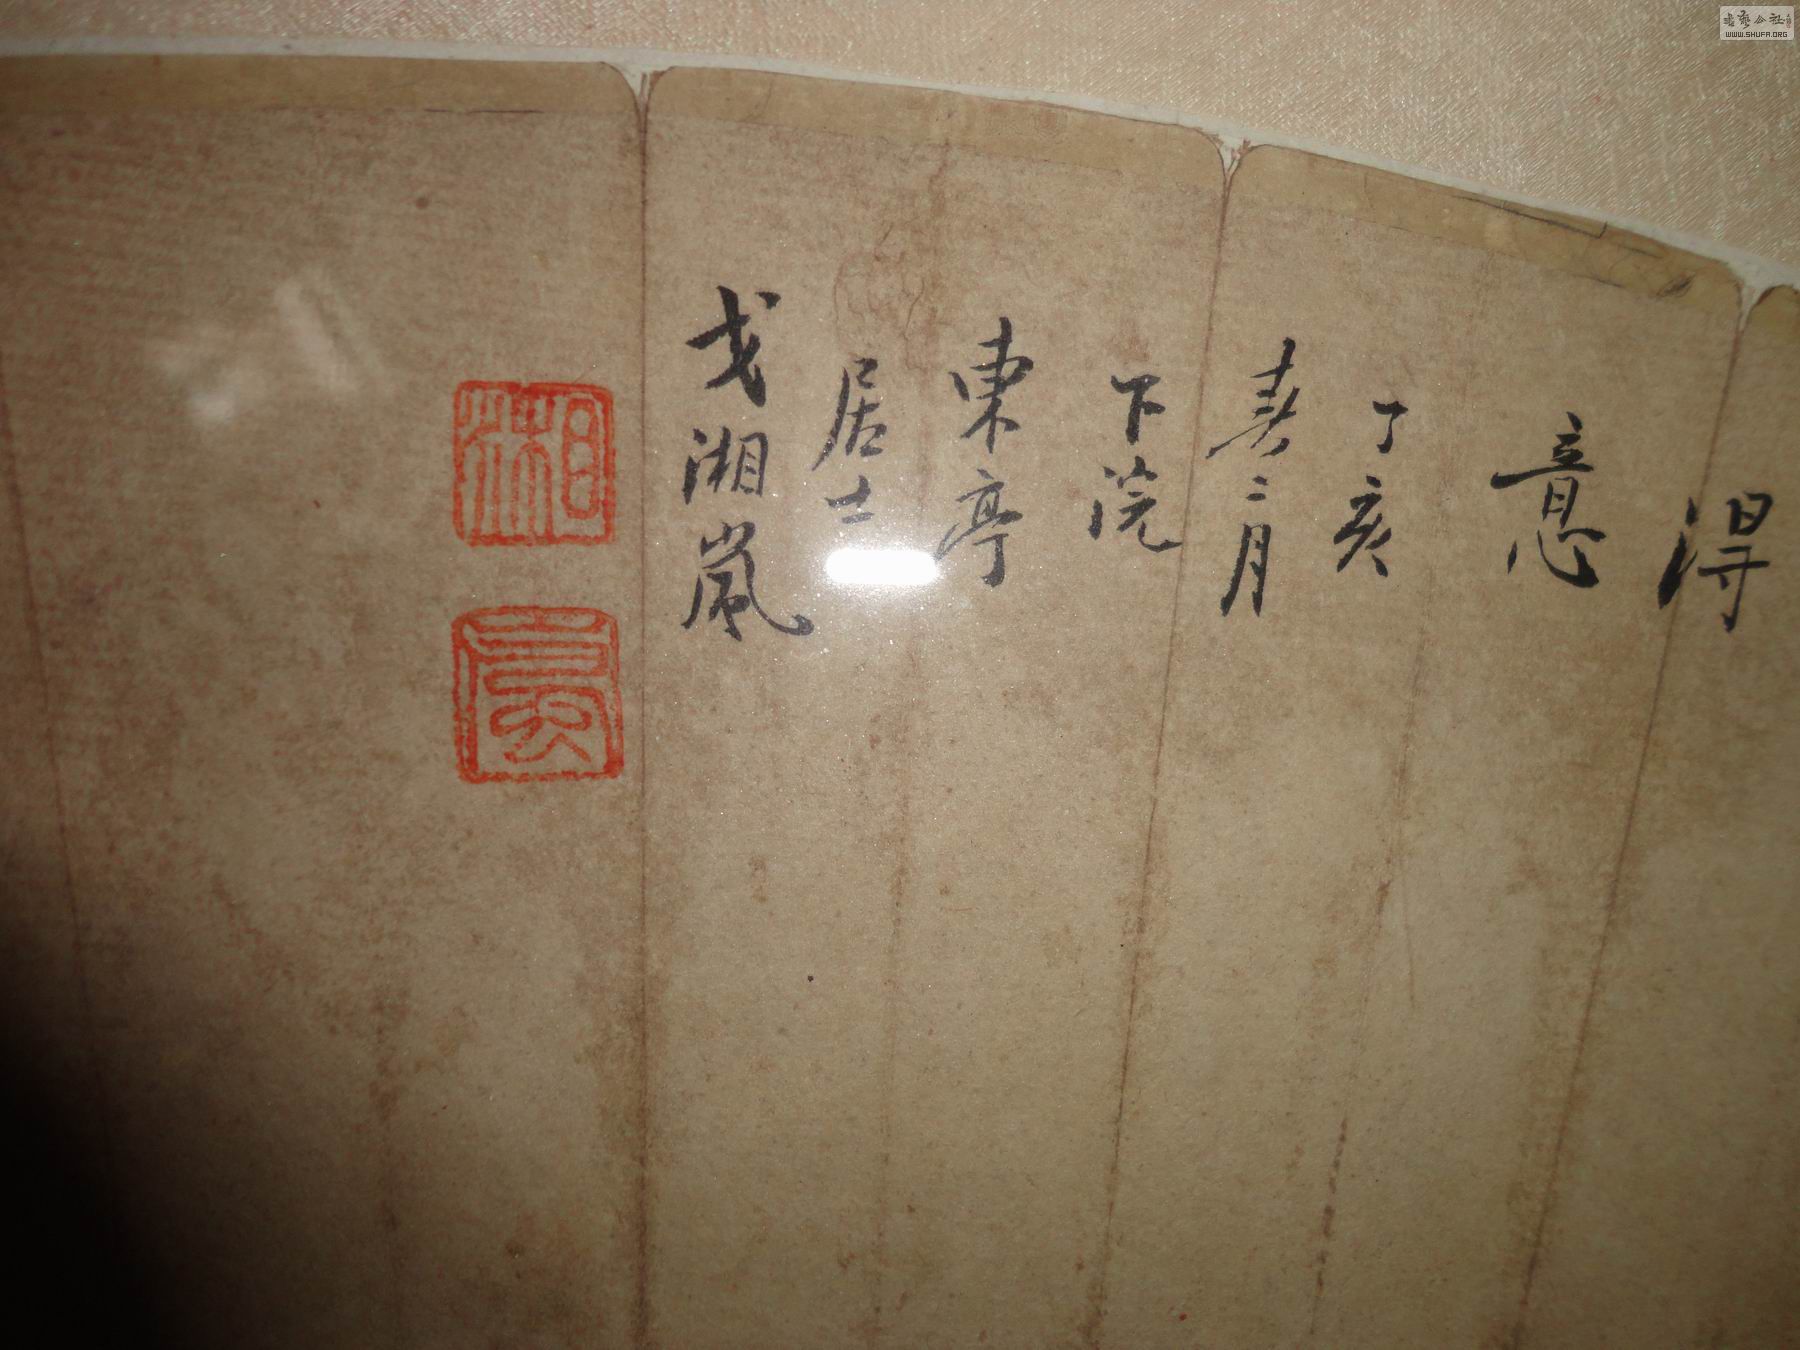 得
意
丁亥
春二月
下浣
東亭
居士
戈湘嵐
湘
WWW.SHUFA.ORG